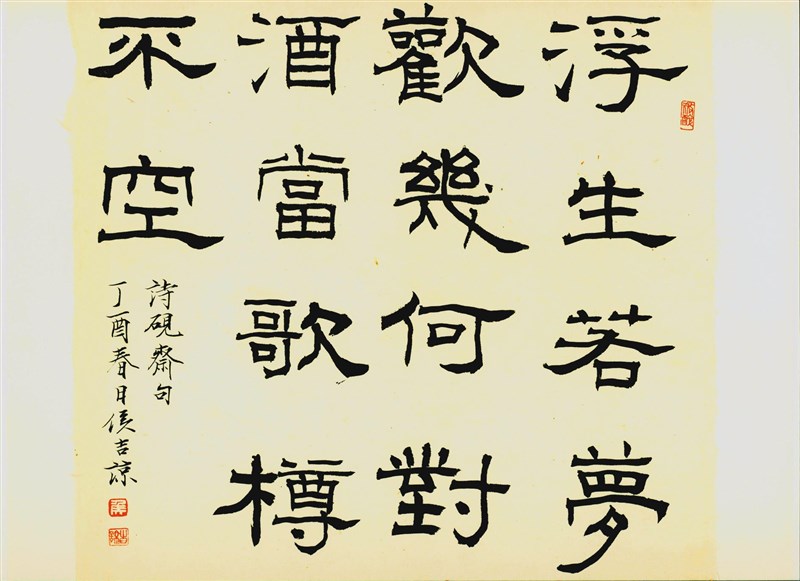 浮生若夢
歡幾何對
酒當歌樽
不空
詩硯齋句
丁酉春日侯吉諒